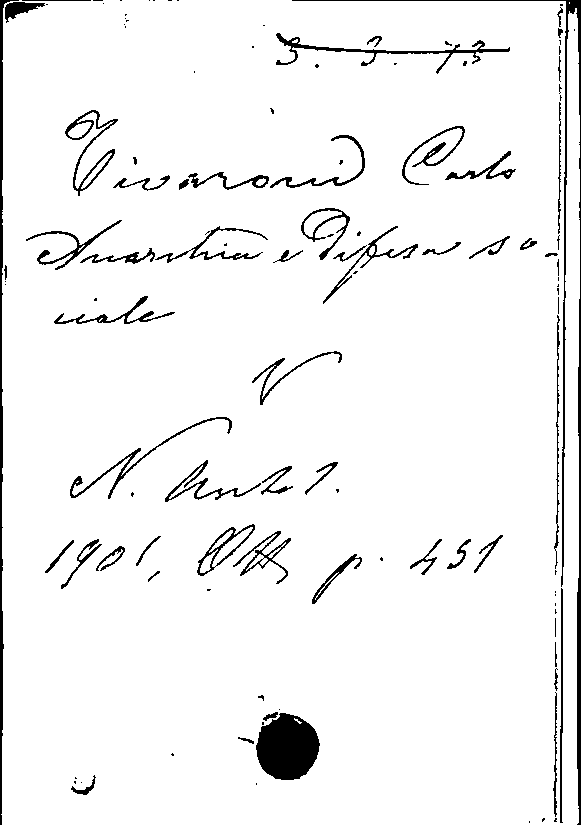 3. 3. 73
Tivaroni Carlo
Anarchia e Difesa so-
ciale
V
N. Antol.
1901, Ott p. 451